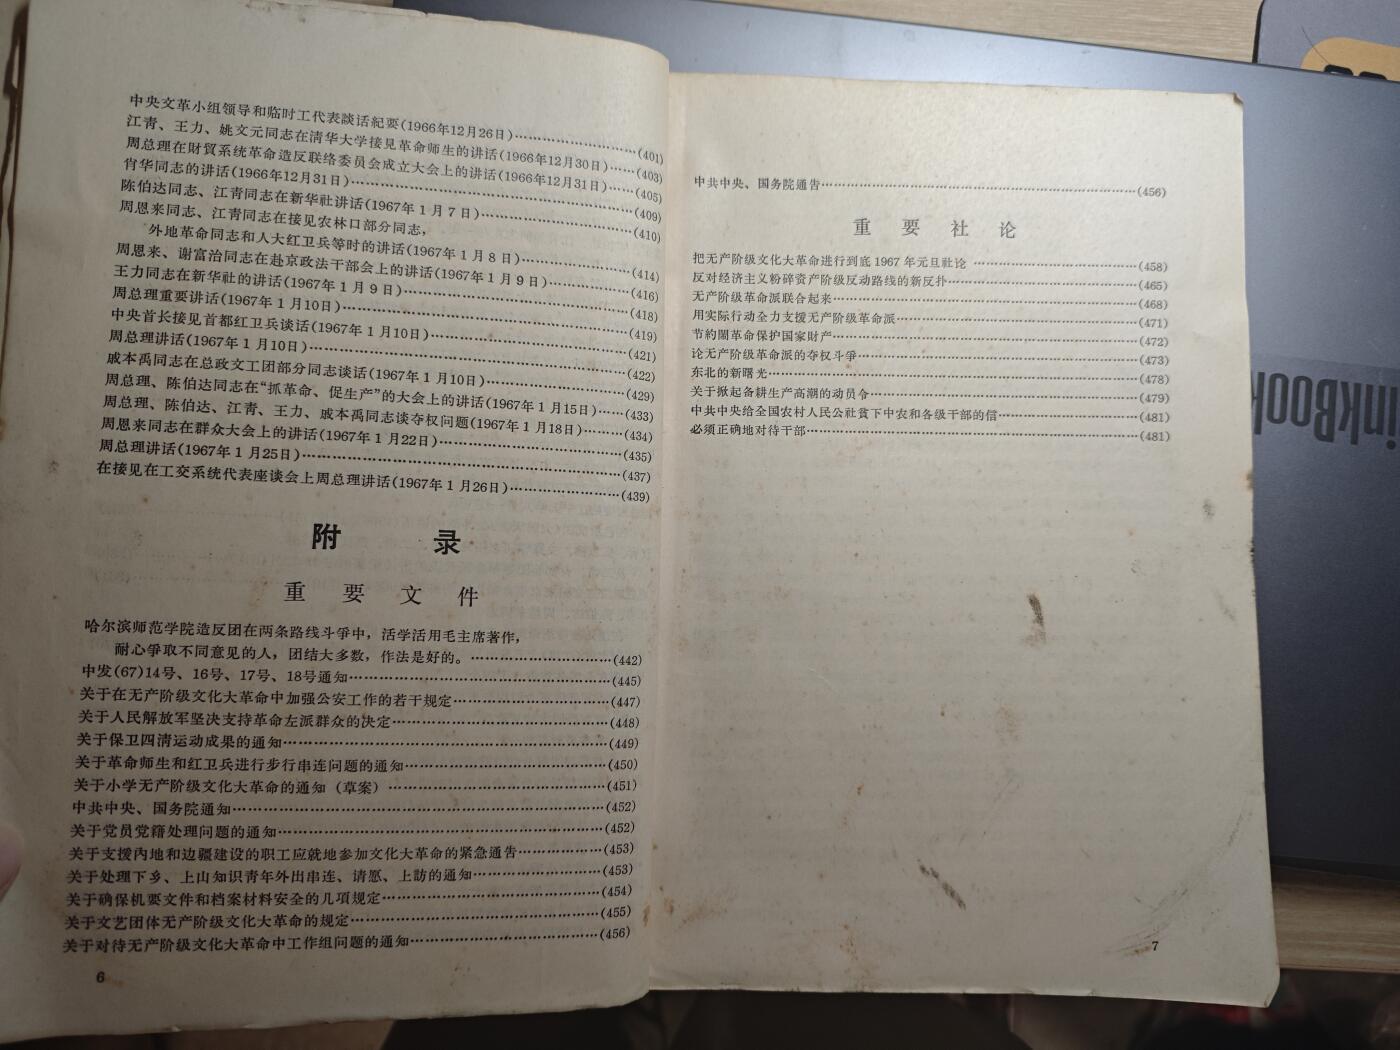 中央文革小组领导和临时工代表談话紀要(1966年12月26日)……………(401)
江青、王力、姚文元同志在清华大学接見革命师生的讲话(1966年12月30日)……(403)
周总理在財貿系统革命造反联络委员会成立大会上的讲话(1966年12月31日)……(405)
肖华同志的讲话(1966年12月31日)………………………………(409)
陈伯达同志、江青同志在新华社讲话(1967年1月7日)…………………(410)
周恩来同志、江青同志在接见农林口部分同志，
外地革命同志和人大红卫兵等时的讲话(1967年1月8日)……………(414)
周恩来、谢富治同志在赴京政法干部会上的讲话(1967年1月9日)…………(416)
王力同志在新华社的讲话(1967年1月9日)……………………………(418)
周总理重要讲话(1967年1月10日)…………………………………(419)
中央首长接见首都红卫兵谈话(1967年1月10日)………………………(421)
周总理讲话(1967年1月10日)……………………………………(422)
戚本禹同志在总政文工团部分同志谈话(1967年1月10日)………………(429)
周总理、陈伯达同志在“抓革命、促生产”的大会上的讲话(1967年1月15日)……(433)
周总理、陈伯达、江青、王力、戚本禹同志谈夺权问题(1967年1月18日)………(434)
周恩来同志在群众大会上的讲话(1967年1月22日)……………………(435)
周总理讲话(1967年1月25日)……………………………………(437)
在接见在工交系统代表座谈会上周总理讲话(1967年1月26日)……………(439)
附 录
重 要 文 件
哈尔滨师范学院造反团在两条路线斗爭中，活学活用毛主席著作，
耐心爭取不同意见的人，团结大多数，作法是好的。………………(442)
中发(67)14号、16号、17号、18号通知………………………………(445)
关于在无产阶级文化大革命中加强公安工作的若干规定…………………(447)
关于人民解放军坚决支持革命左派群众的决定…………………………(448)
关于保卫四清运动成果的通知……………………………………(449)
关于革命师生和红卫兵进行步行串连问题的通知………………………(450)
关于小学无产阶级文化大革命的通知（草案）…………………………(451)
中共中央、国务院通知…………………………………………(452)
关于党员党籍处理问题的通知……………………………………(452)
关于支援內地和边疆建设的职工应就地参加文化大革命的紧急通告…………(453)
关于处理下乡、上山知识青年外出串连、请愿、上訪的通知………………(453)
关于确保机要文件和档案材料安全的几項规定…………………………(454)
关于文艺团体无产阶级文化大革命的规定……………………………(455)
关于对待无产阶级文化大革命中工作组问题的通知……………………(456)
6
中共中央、国务院通告…………………………………………(456)
重 要 社 论
把无产阶级文化大革命进行到底1967年元旦社论 ……………………(458)
反对经济主义粉碎资产阶级反动路线的新反扑…………………………(465)
无产阶级革命派联合起来…………………………………………(468)
用实际行动全力支援无产阶级革命派………………………………(471)
节約闹革命保护国家財产…………………………………………(472)
论无产阶级革命派的夺权斗爭……………………………………(473)
东北的新曙光………………………………………………(478)
关于掀起备耕生产高潮的动员令……………………………………(479)
中共中央给全国农村人民公社贫下中农和各级干部的信…………………(481)
必须正确地对待干部……………………………………………(481)
7
inkBook